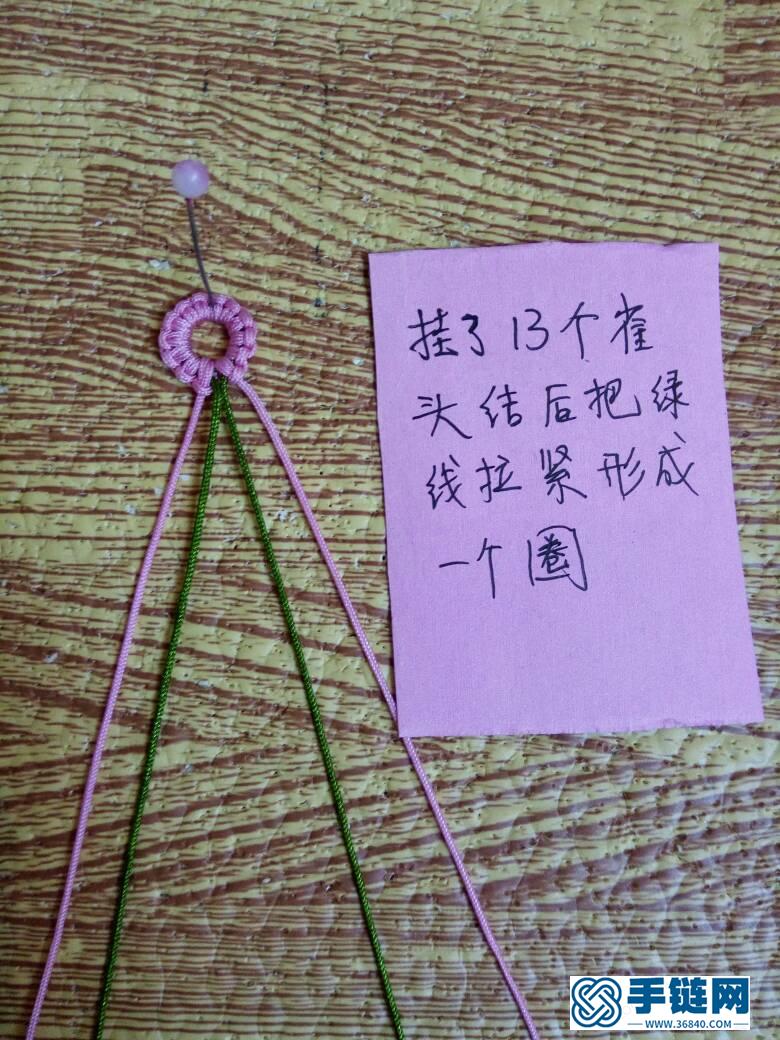 挂了13个雀
头结后把绿
线拉紧形成
一个圈
手链网
WWW.36840.COM